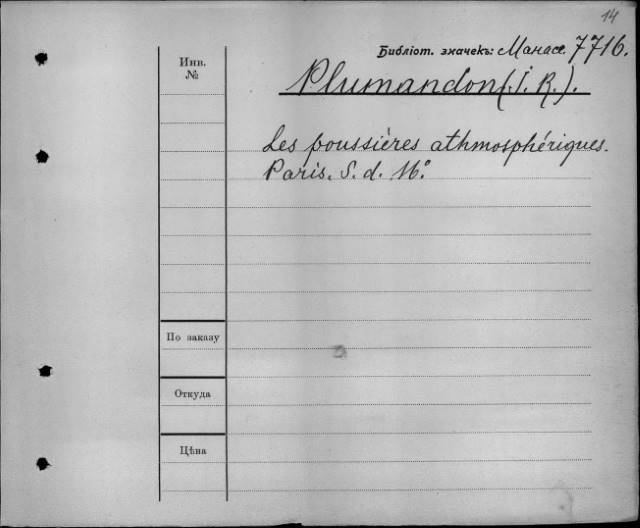 14
Библіот. значекъ: Манас. 7716.
Инв.
№
Plumandon (J. R.).
Les poussiéres athmosphériques.
Paris. S. d. 16º
По заказу
Откуда
Цѣна